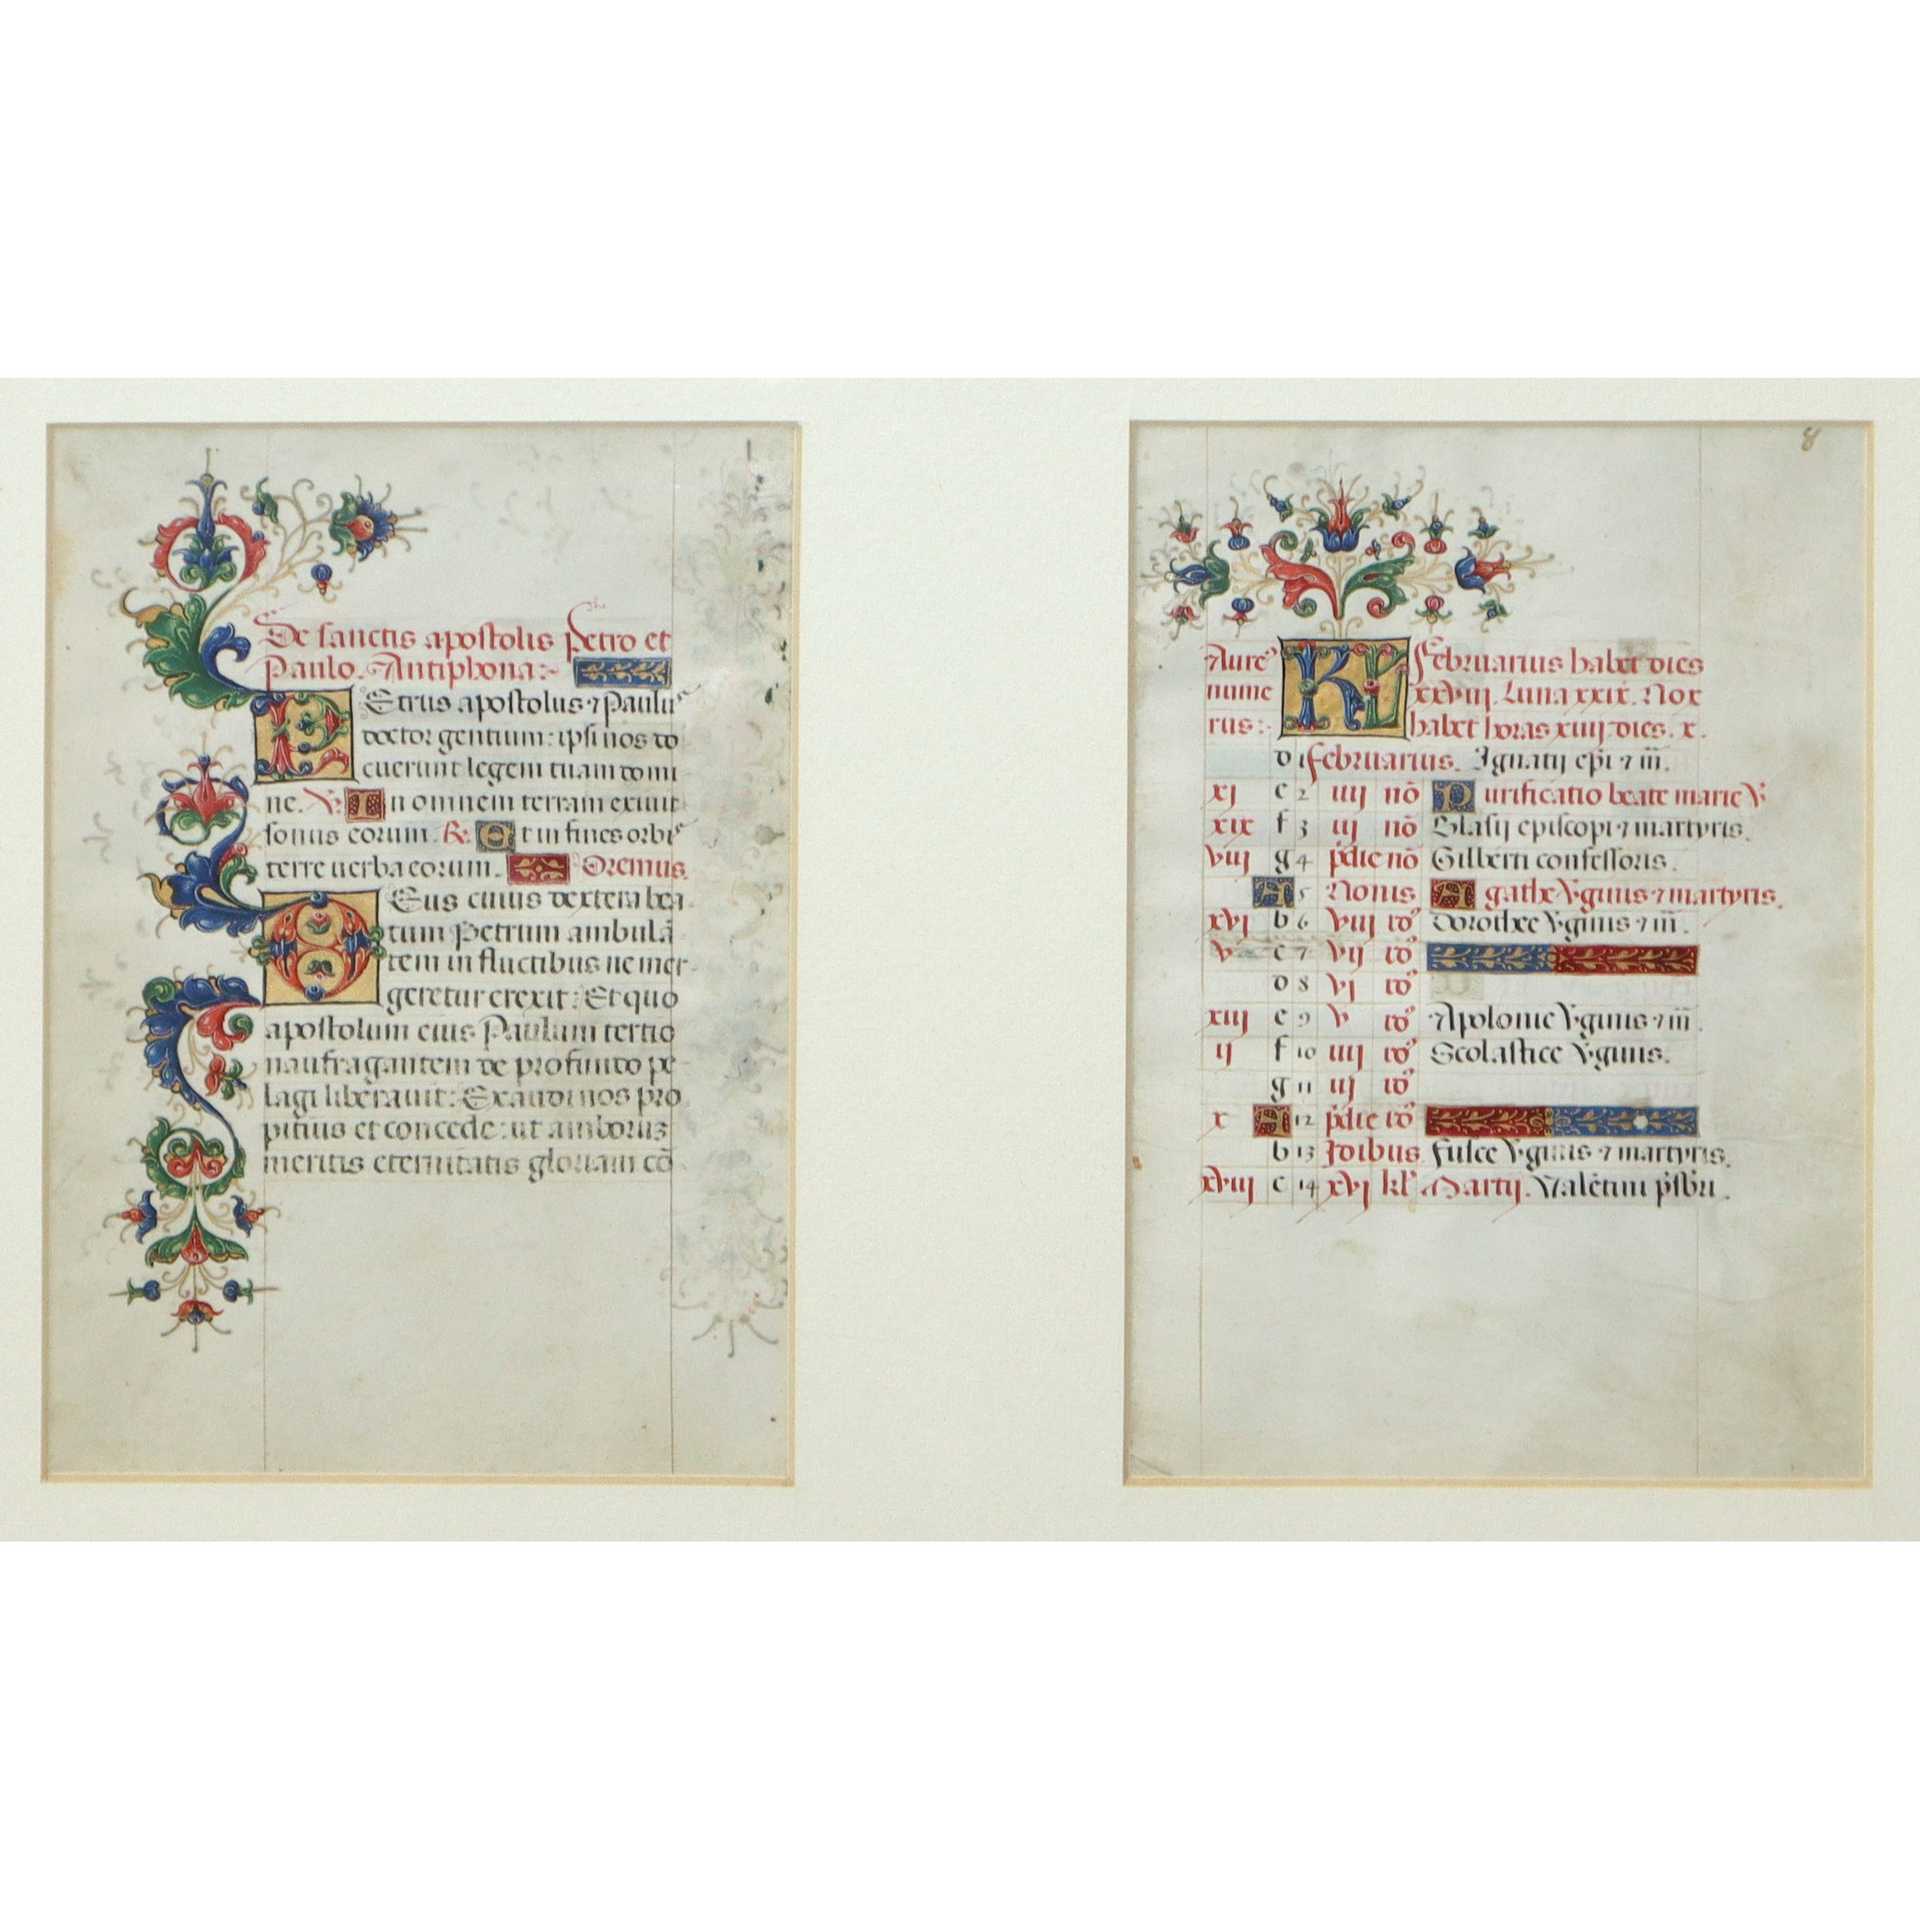 De sanctis apostolis petro et
Paulo. Antiphona:
PEtrus apostolus ⁊ Paulus
doctor gentium: ipsi nos do
cuerunt legem tuam domi
ne. V. In omnem terram exiuit
sonus eorum. R. Et in fines orbis
terre uerba eorum. Oremus.
DEus cuius dextera bea
tum Petrum ambulā
tem in fluctibus ne mer
geretur erexit: Et quo
apostolum eius Paulum tertio
naufragantem de profundo pe
lagi liberauit: Exaudi nos pro
pitius et concede: ut amborum
meritis eternitatis gloriam cō
8
Aure⁹ KL Februarius habet dies
nume xxviii. Luna xxix. Nox
rus: habet horas xiiij. dies. x.
d 1 februarius. Ignatij ep̄i ⁊ m̄.
xj e 2 iiij nō Purificatio beate marie V
xix f 3 iij nō Blasij episcopi ⁊ martyris.
viij g 4 p̄die nō Gilberti confessoris.
A 5 Nonis Agathe V̓ginis ⁊ martyris.
xvj b 6 viij id⁹ Dorothee V̓ginis ⁊ m̄.
v c 7 vij id⁹
d 8 vj id⁹
xiij e 9 v id⁹ Apolonie V̓ginis ⁊ m̄.
ij f 10 iiij id⁹ Scolastice V̓ginis.
g 11 iij id⁹
x A 12 p̄die id⁹
b 13 Idibus. fusce V̓ginis ⁊ martyris.
xviij c 14 xvj kl̓ Martij. Valētini p̄sbri.